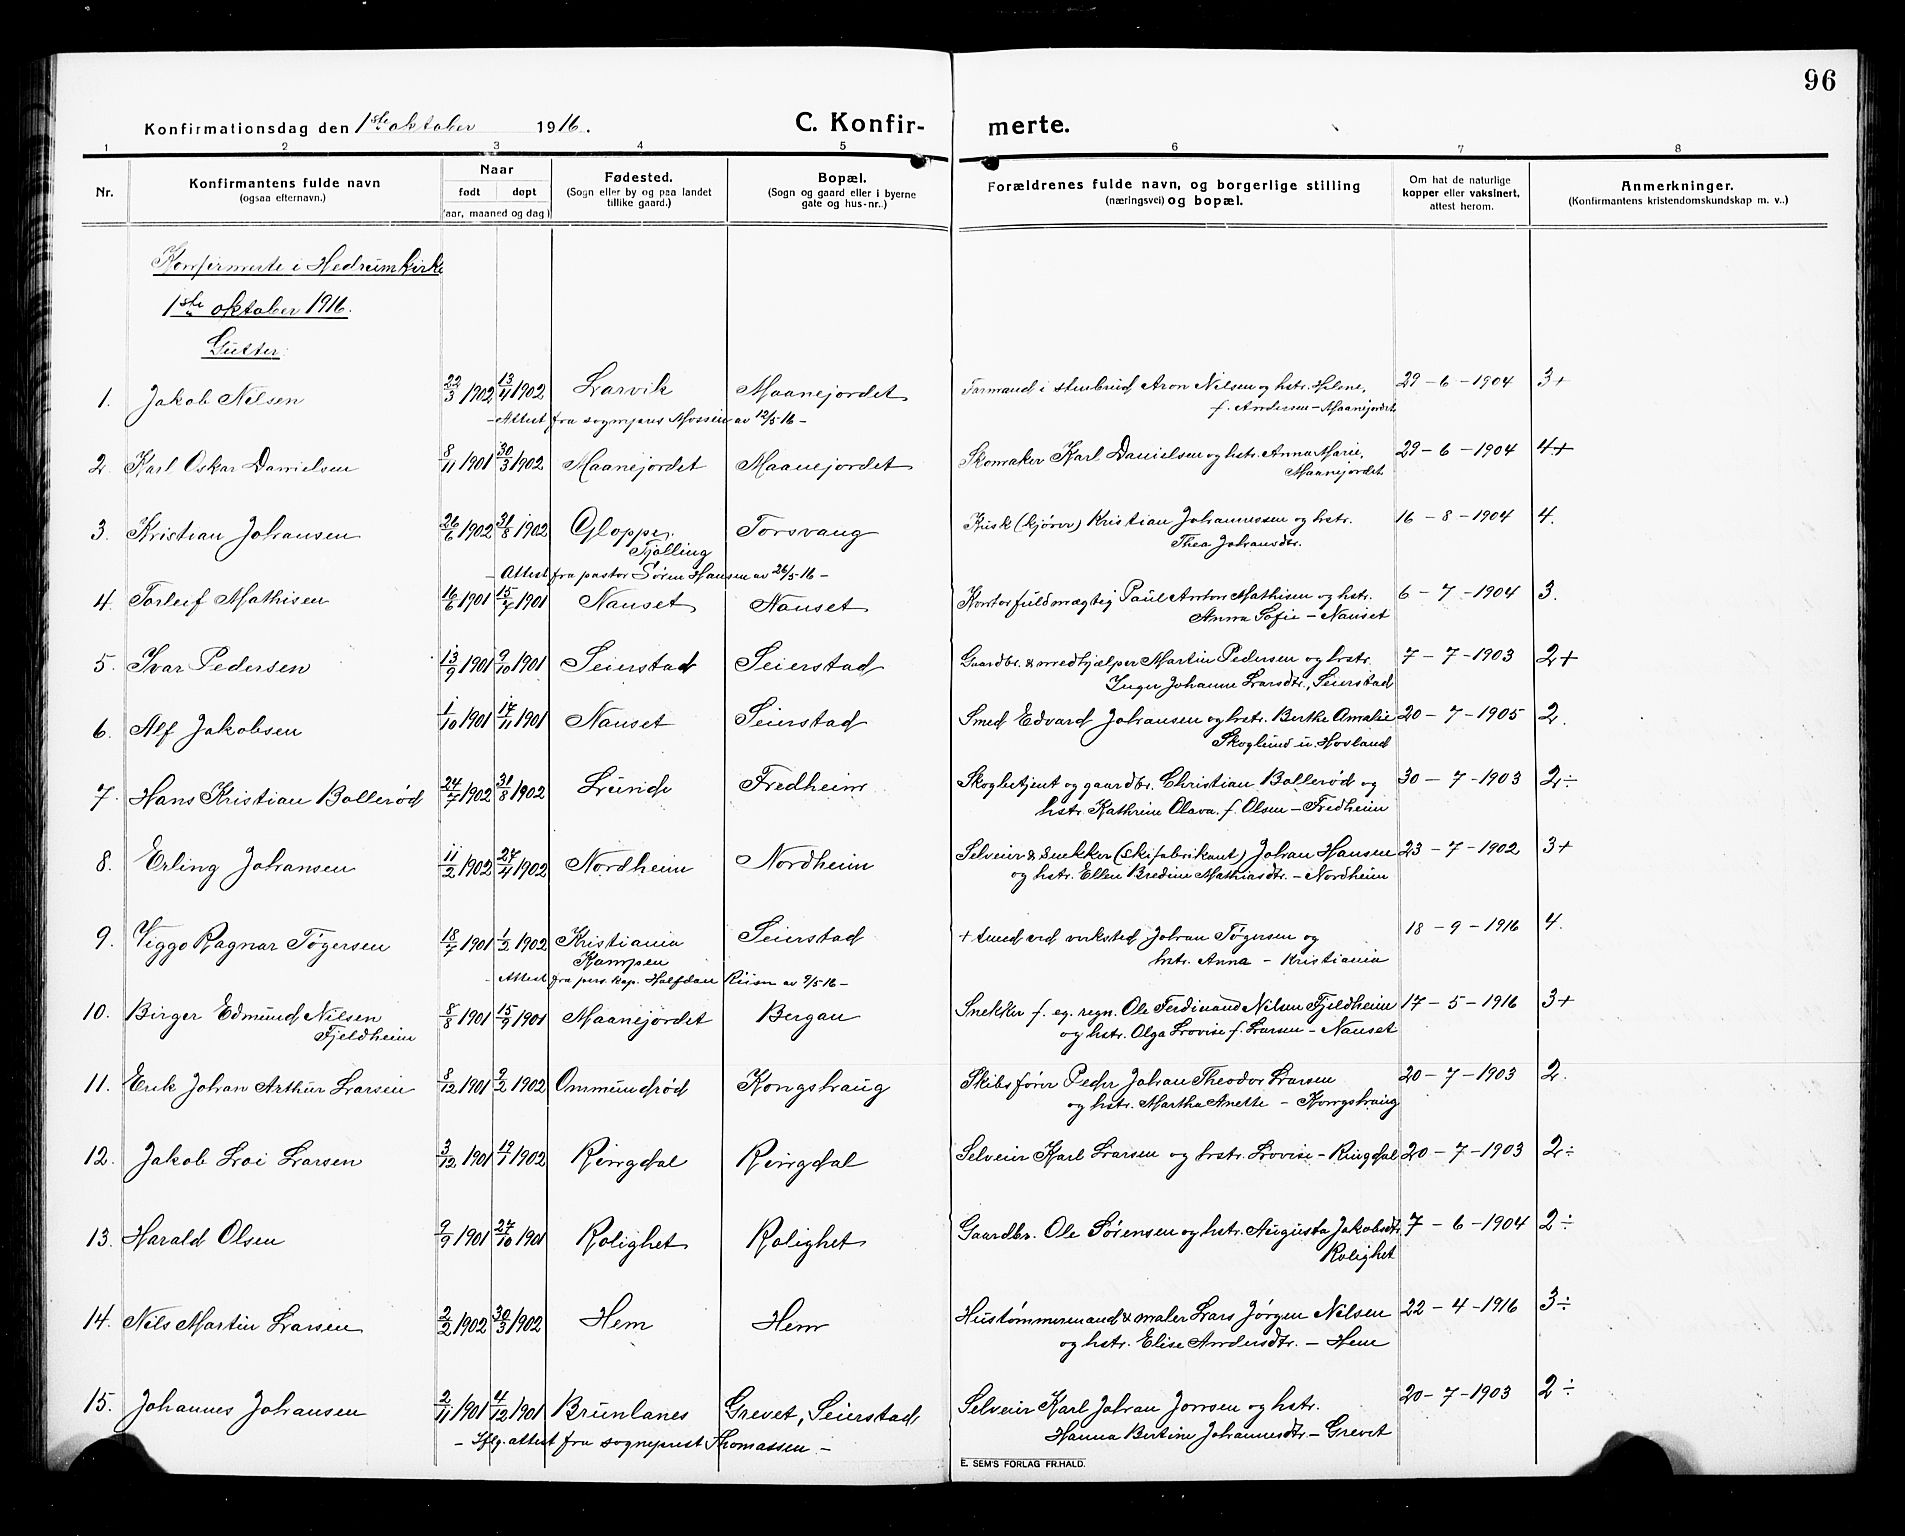 96
Konfirmationsdag den 1ste oktober 1916.
C. Konfirmerte.
1 2 3 4 5 6 7 8
Nr.
Konfirmantens fulde navn
(ogsaa efternavn.)
Naar
født døpt
(aar, maaned og dag)
Fødested.
(Sogn eller by og paa landet
tillike gaard.)
Bopæl.
(Sogn og gaard eller i byerne
gate og hus-nr..)
Forældrenes fulde navn, og borgerlige stilling
(næringsvei) og bopæl.
Om hat de naturlige
kopper eller vaksinert,
attest herom.
Anmerkninger.
(Konfirmantens kristendomskundskap m. v..)
Konfirmerte i Hedrum kirke
1ste oktober 1916.
Gutter:
1. Jakob Nilsen 22/3 1902 13/4 1902 Larvik Maanejordet Formand i stenbrud Aron Nilsen og hstr. Helene, 29-6-1904 3+
f. Andersen - Maanejordet
- Attest fra sognepres Mossin av 12/5 16 -
2. Karl Oskar Danielsen 8/11 1901 30/3 1902 Maanejordet Maanejordet Skomaker Karl Danielsen og hstr. Anna Marie, 29-6-1904 4+
Maanejordet
3. Kristian Johansen 26/6 1902 31/8 1902 Gloppe, Torsvang Kusk (kjører) Kristian Johannessen og hstr. 16-8-1904 4.
Tjølling Thea Johansdtr.
- Attest fra pastor Søren Hansen av 26/5 16 -
4. Torleif Mathisen 16/6 1901 15/7 1901 Nanset Nanset Kontorfuldmægtig Paul Anton Mathisen og hstr. 6-7-1904 3.
Anna Sofie - Nanset
5. Ivar Pedersen 13/9 1901 9/10 1901 Seierstad Seierstad Gaardbr. & medhjælper Martin Pedersen og hstr. 7-7-1903 2+
Inger Johanne Larsdtr., Seierstad
6. Alf Jakobsen 1/10 1901 17/11 1901 Nanset Seierstad Smed Edvard Johansen og hstr. Berthe Amalie 20-7-1905 2.
Skoglund u. Hovland
7. Hans Kristian Bollerød 24/7 1902 31/8 1902 Lunde Fredheim Skogbetjent og gaardbr. Christian Bollerød og 30-7-1903 2÷
hstr. Kathrine Olava f. Olsen - Fredheim
8. Erling Johansen 11/2 1902 27/4 1902 Nordheim Nordheim Selveier & snekker (skifabrikant) Johan Hansen 23-7-1902 3+
og hstr. Ellen Bredine Mathiasdtr. - Nordheim
9. Viggo Ragnar Tøgersen 18/7 1901 1/2 1902 Kristiania Seierstad + smed ved verksted Johan Tøgersen og 18-9-1916 4.
Kampen hstr. Anna - Kristiania
- Attest fra pers. kap. Halfdan Riisn av 9/5 16 -
10. Birger Edmund Nilsen 8/8 1901 15/9 1901 Maanejordet Bergan Snekker f. eg. regn. Ole Ferdinand Nilsen Fjeldheim 17-5-1916 3+
Fjeldheim og hstr. Olga Lovise f. Larsen - Nanset
11. Erik Johan Arthur Larsen 8/12 1901 9/2 1902 Ommundrød Kongshaug Skibsfører Peder Johan Theodor Larsen 20-7-1903 2.
og hstr. Martha Anette - Kongshaug
12. Jakob Loi Larsen 3/12 1901 19/1 1902 Ringdal Ringdal Selveier Karl Larsen og hstr. Lovise - Ringdal 20-7-1903 2÷
13. Harald Olsen 9/9 1901 27/10 1901 Rolighet Rolighet Gaardbr. Ole Sørensen og hstr. Augusta Jakobsdtr. 7-6-1904 2÷
Rolighet
14. Nils Martin Larsen 2/2 1902 30/3 1902 Hem Hem Hustømmermand & maler Lars Jørgen Nilsen 22-4-1916 3÷
og hstr. Elise Andersdtr. - Hem
15. Johannes Johansen 2/11 1901 4/12 1901 Brunlanes Grevet, Seierstad Selveier Karl Johan Jonsen og hstr. 20-7-1903 2÷
Hanna Bertine Johannesdtr. - Grevet
- Iflg. attest fra sogneprest Thomassen -
E. SEM'S FORLAG FR.HALD.